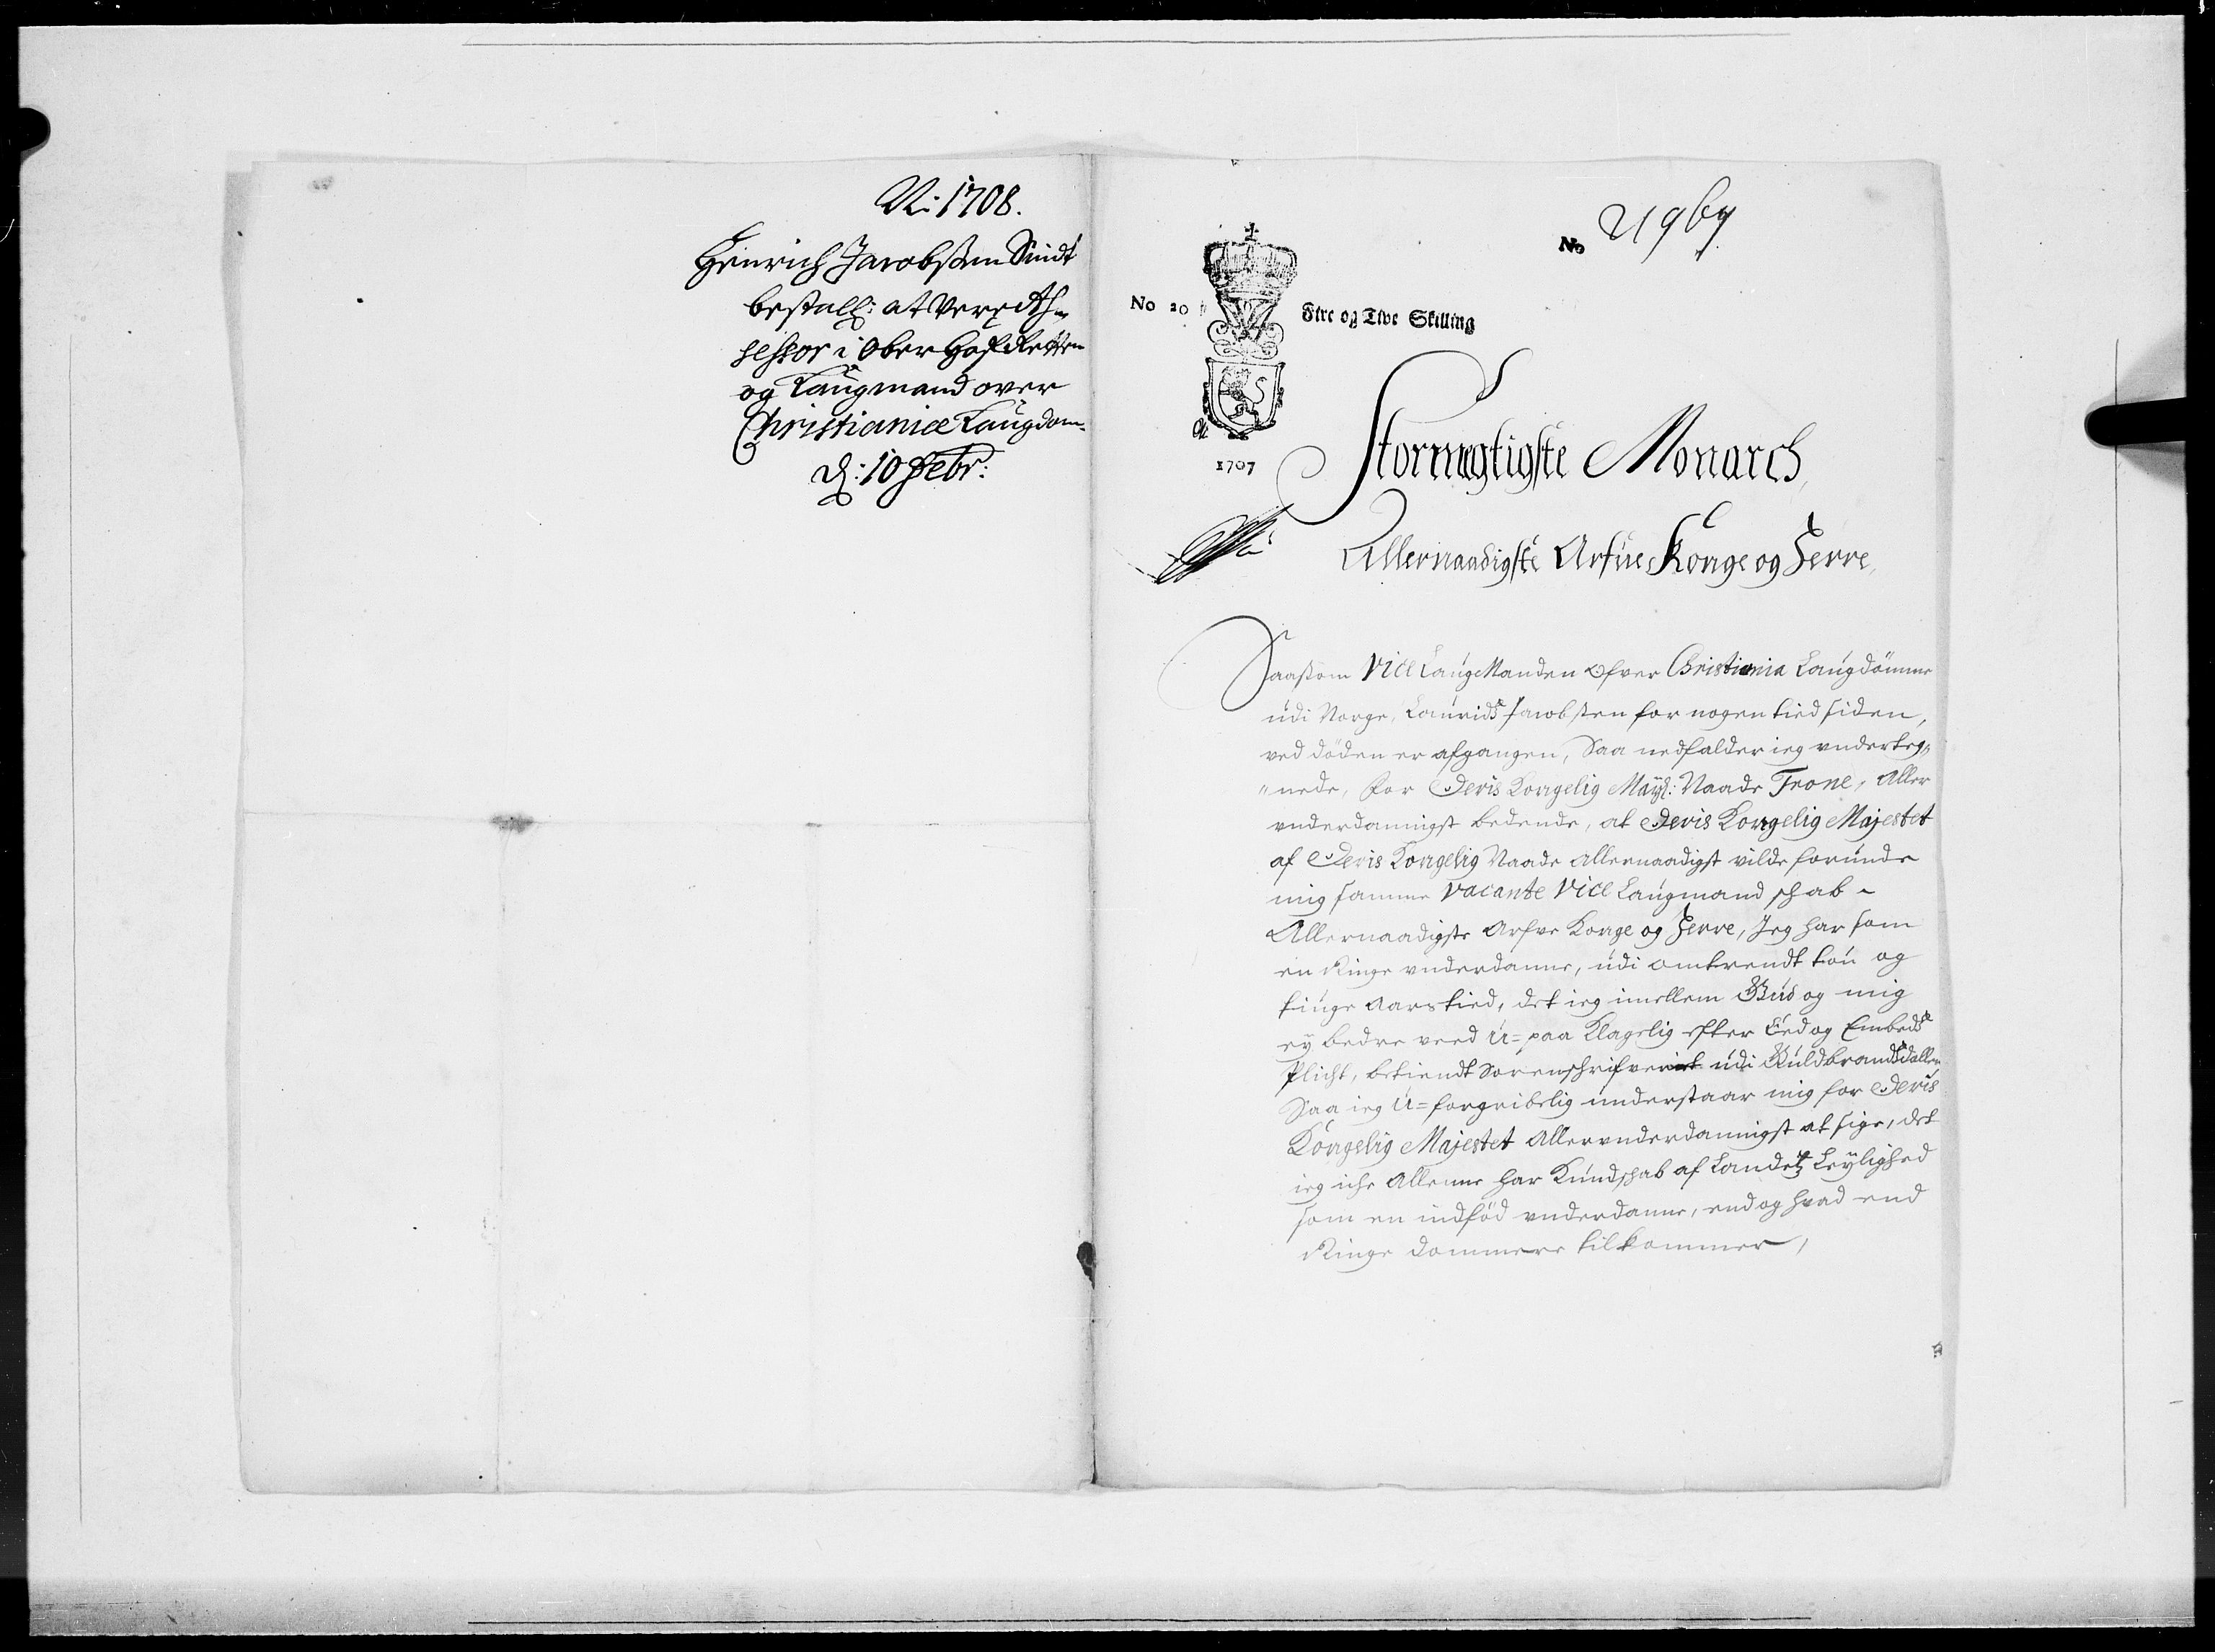 N: 1708.
Henrich Jacobssen Smidt
bestall: at Være As-
sessor i Ober Hof Retten
og Laugmand over
Christianiæ Laugdom.
d: 10 Febr:
No
No 20
Fire og Tive Skilling
1707
Stormegtigste Monarch,
Allernaadigste Arfue Konge og Herre,
Saassom Vice LaugManden Ofver Christiania Laugdömme
udi Norge, Lauridz Jacobsten for nogen tied siden,
ved döden er afgangen, Saa nedfalder ieg underteg„
„nede, for Deris Kongelig Mayt: Naade Trone, Aller
underdannigst bedende, at Deris Kongelig Majestet
af Deris Kongelig Naade allernaadigst vilde forunde
mig samme vacante Vice Laugmand schab ~
Allernaadigste Arfve Konge og Herre, Jeg har som
en Ringe underdanne, udi omtrendt tou og
tiuge Aars tied, det ieg imellem Gud og mig
ey bedre veed u=paa Klagelig efter Eed og Embeds
Plicht, betiendt Sorenschrifveriet udi Guldbrandsdallen
Saa ieg u=forgribelig understaar mig for Deris
Kongelig Majestet Allerunderdannigst at sige, det
ieg iche Allenne har Kundschab af Landetz Leylighed
som en indföd underdanne, end og hvad end
Ringe Dommere tilkommer,